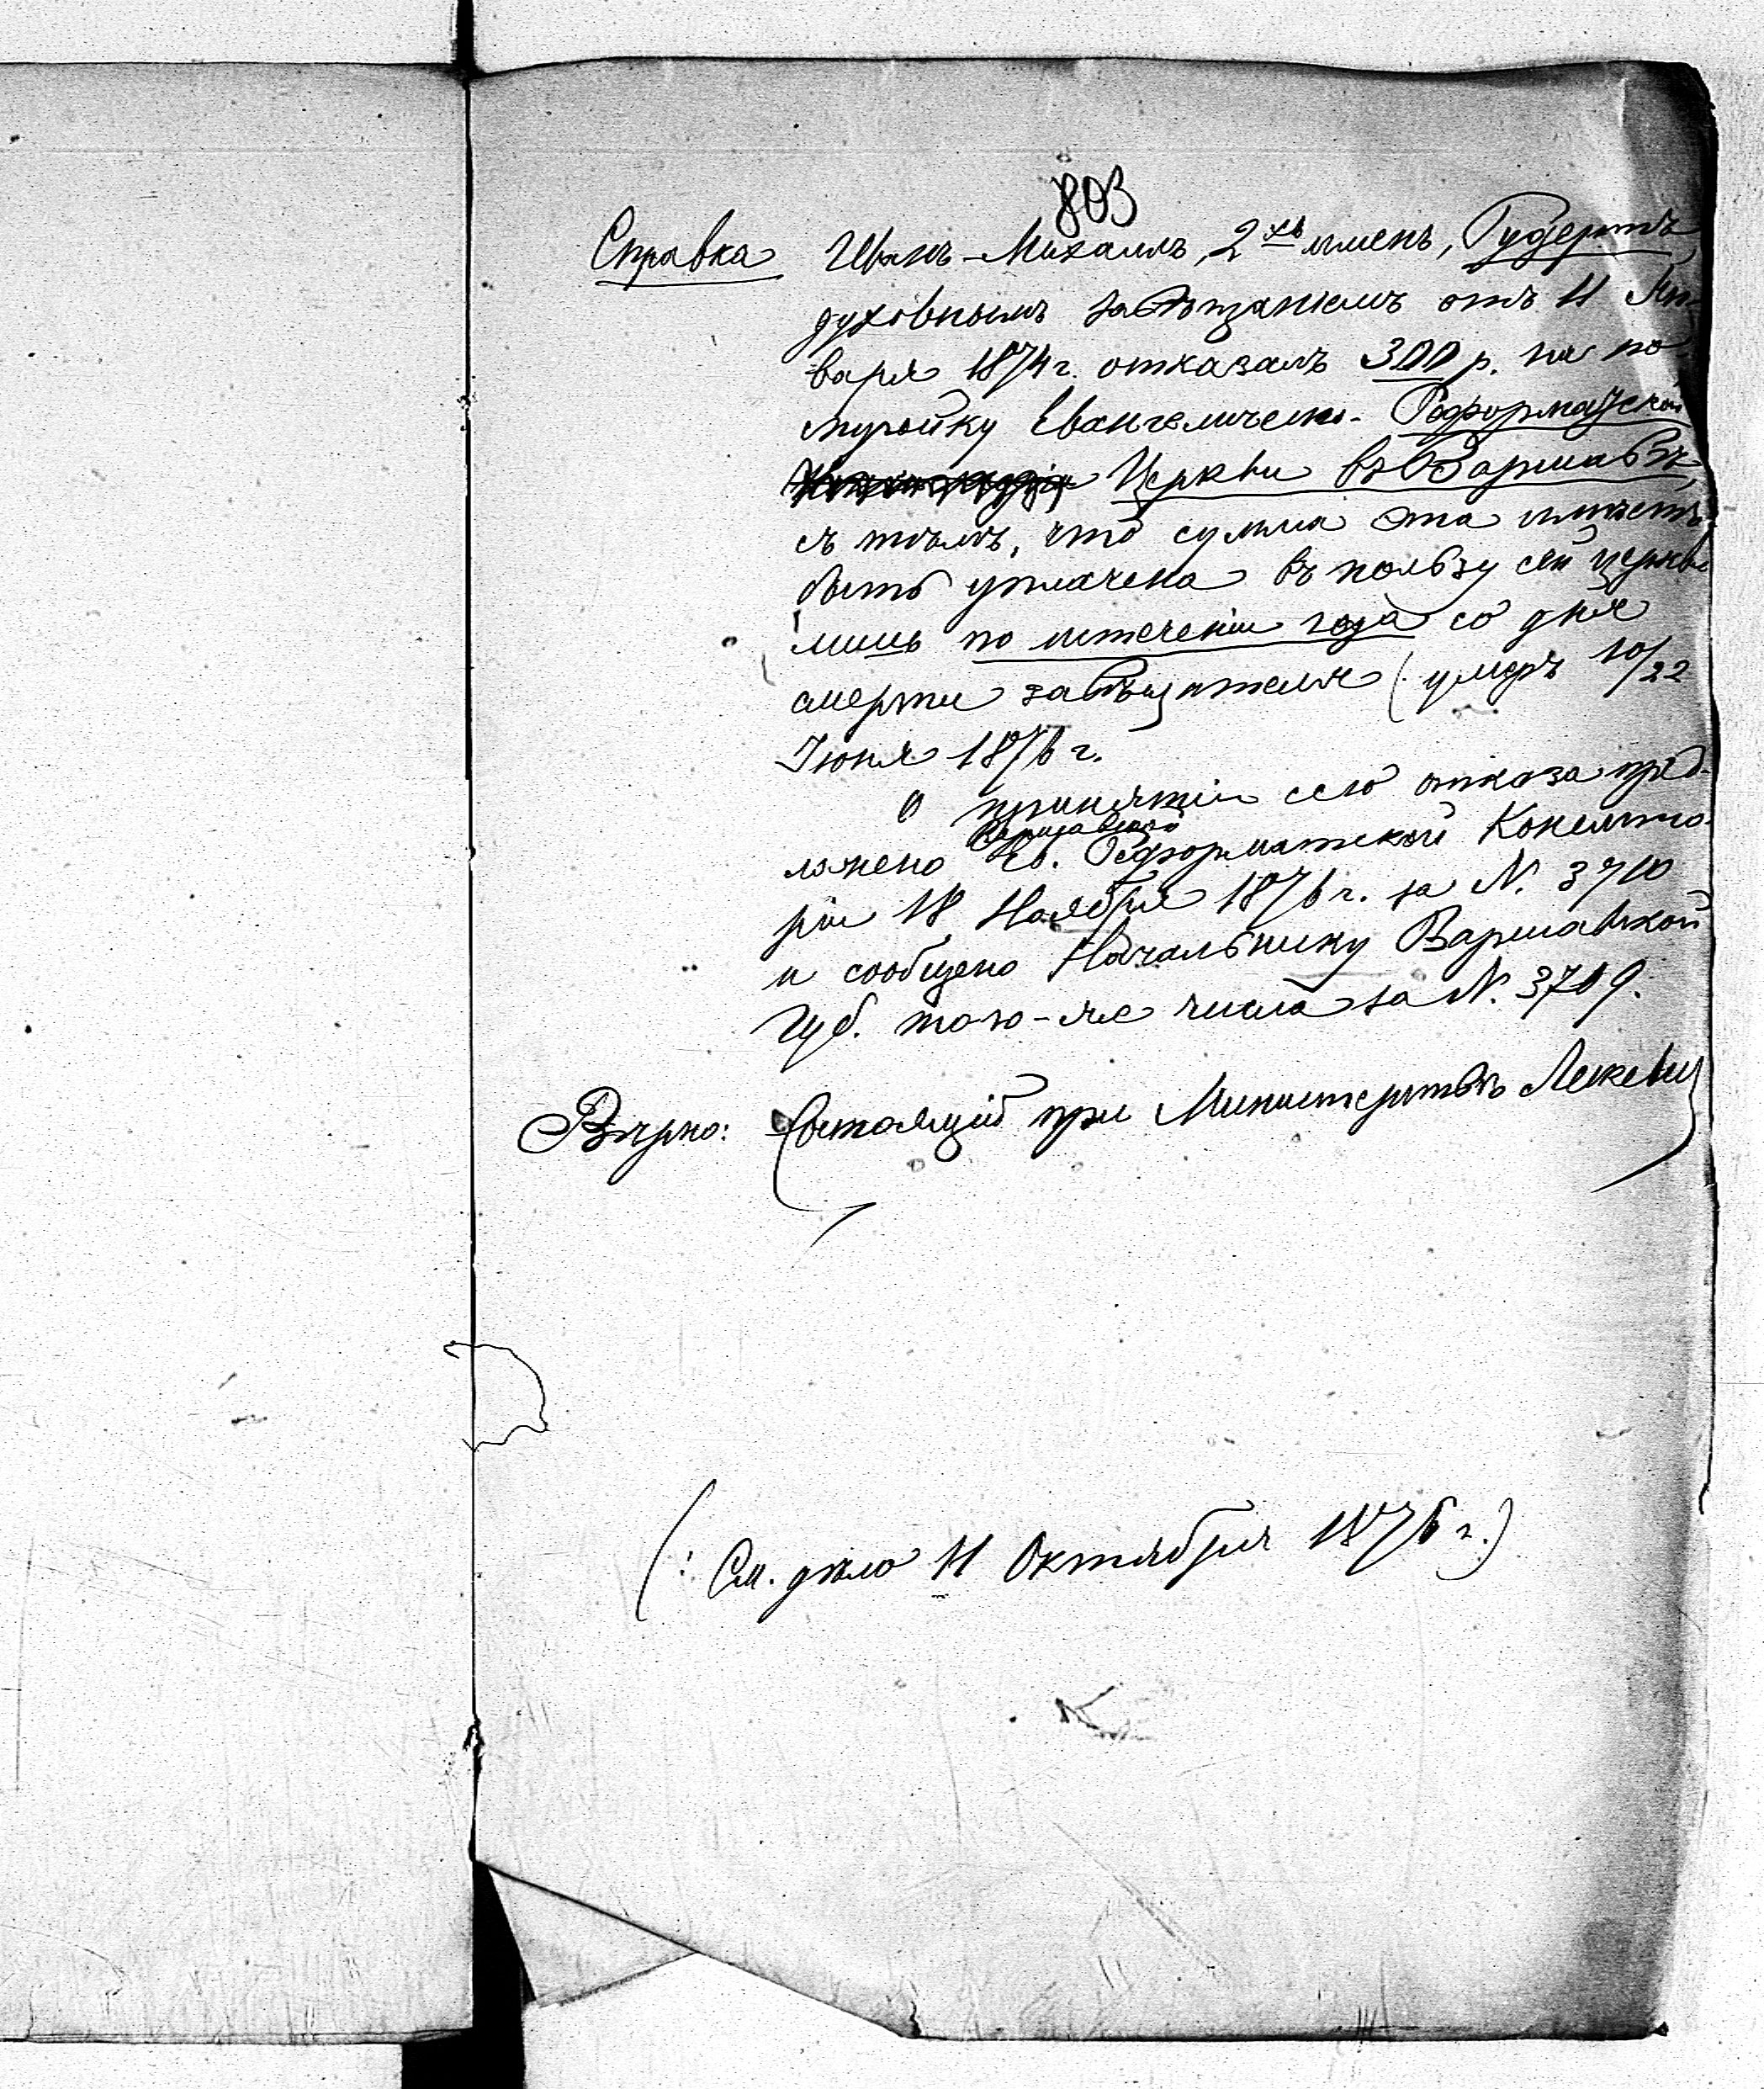 803
Справка Иванъ-Михаилъ, 2хъ именъ,
духовнымъ завѣщаніемъ отъ 11 Ян-
варя 1874 г. отказалъ 300 р. на по-
стройку Евангелическо-Реформатской
Церкви въ Варшавѣ,
съ тѣмъ, что сумма эта имѣетъ
быть уплачена въ пользу сей церкви
лишь по истеченіи года со дня
смерти завѣщателя (умеръ 10/22
Іюня 1876 г.
О принятіи сего отказа пред-
Варшавской
ложено Ев. Реформатской Консисто-
ріи 18 Ноября 1876 г. за N. 3710
и сообщено Начальнику Варшавской
Губ. того-же числа за N. 3709.
Вѣрно: Состоящій при Министерствѣ
(: См. дѣло 11 Октября 1876 г.)